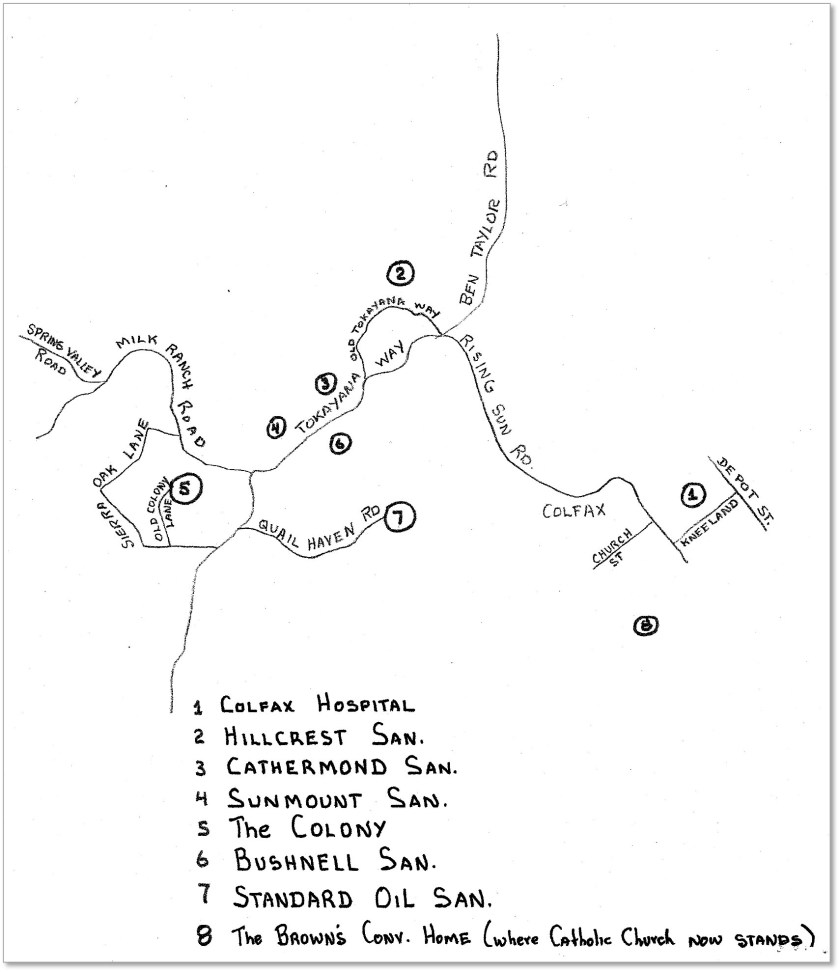 BEN TAYLOR RD
2
OLD TOKAYANA WAY
SPRING VALLEY
ROAD
MILK RANCH ROAD
TOKAYANA WAY
RISING SUN RD.
3
4
6
OAK LANE
SIERRA
5
OLD COLONY
LANE
QUAIL HAVEN RD
7
COLFAX
1
DEPOT ST.
KNEELAND
CHURCH
ST
8
1 COLFAX HOSPITAL
2 HILLCREST SAN.
3 CATHERMOND SAN.
4 SUNMOUNT SAN.
5 The COLONY
6 BUSHNELL SAN.
7 STANDARD OIL SAN.
8 The BROWN'S CONV. HOME (where Catholic Church NOW STANDS)